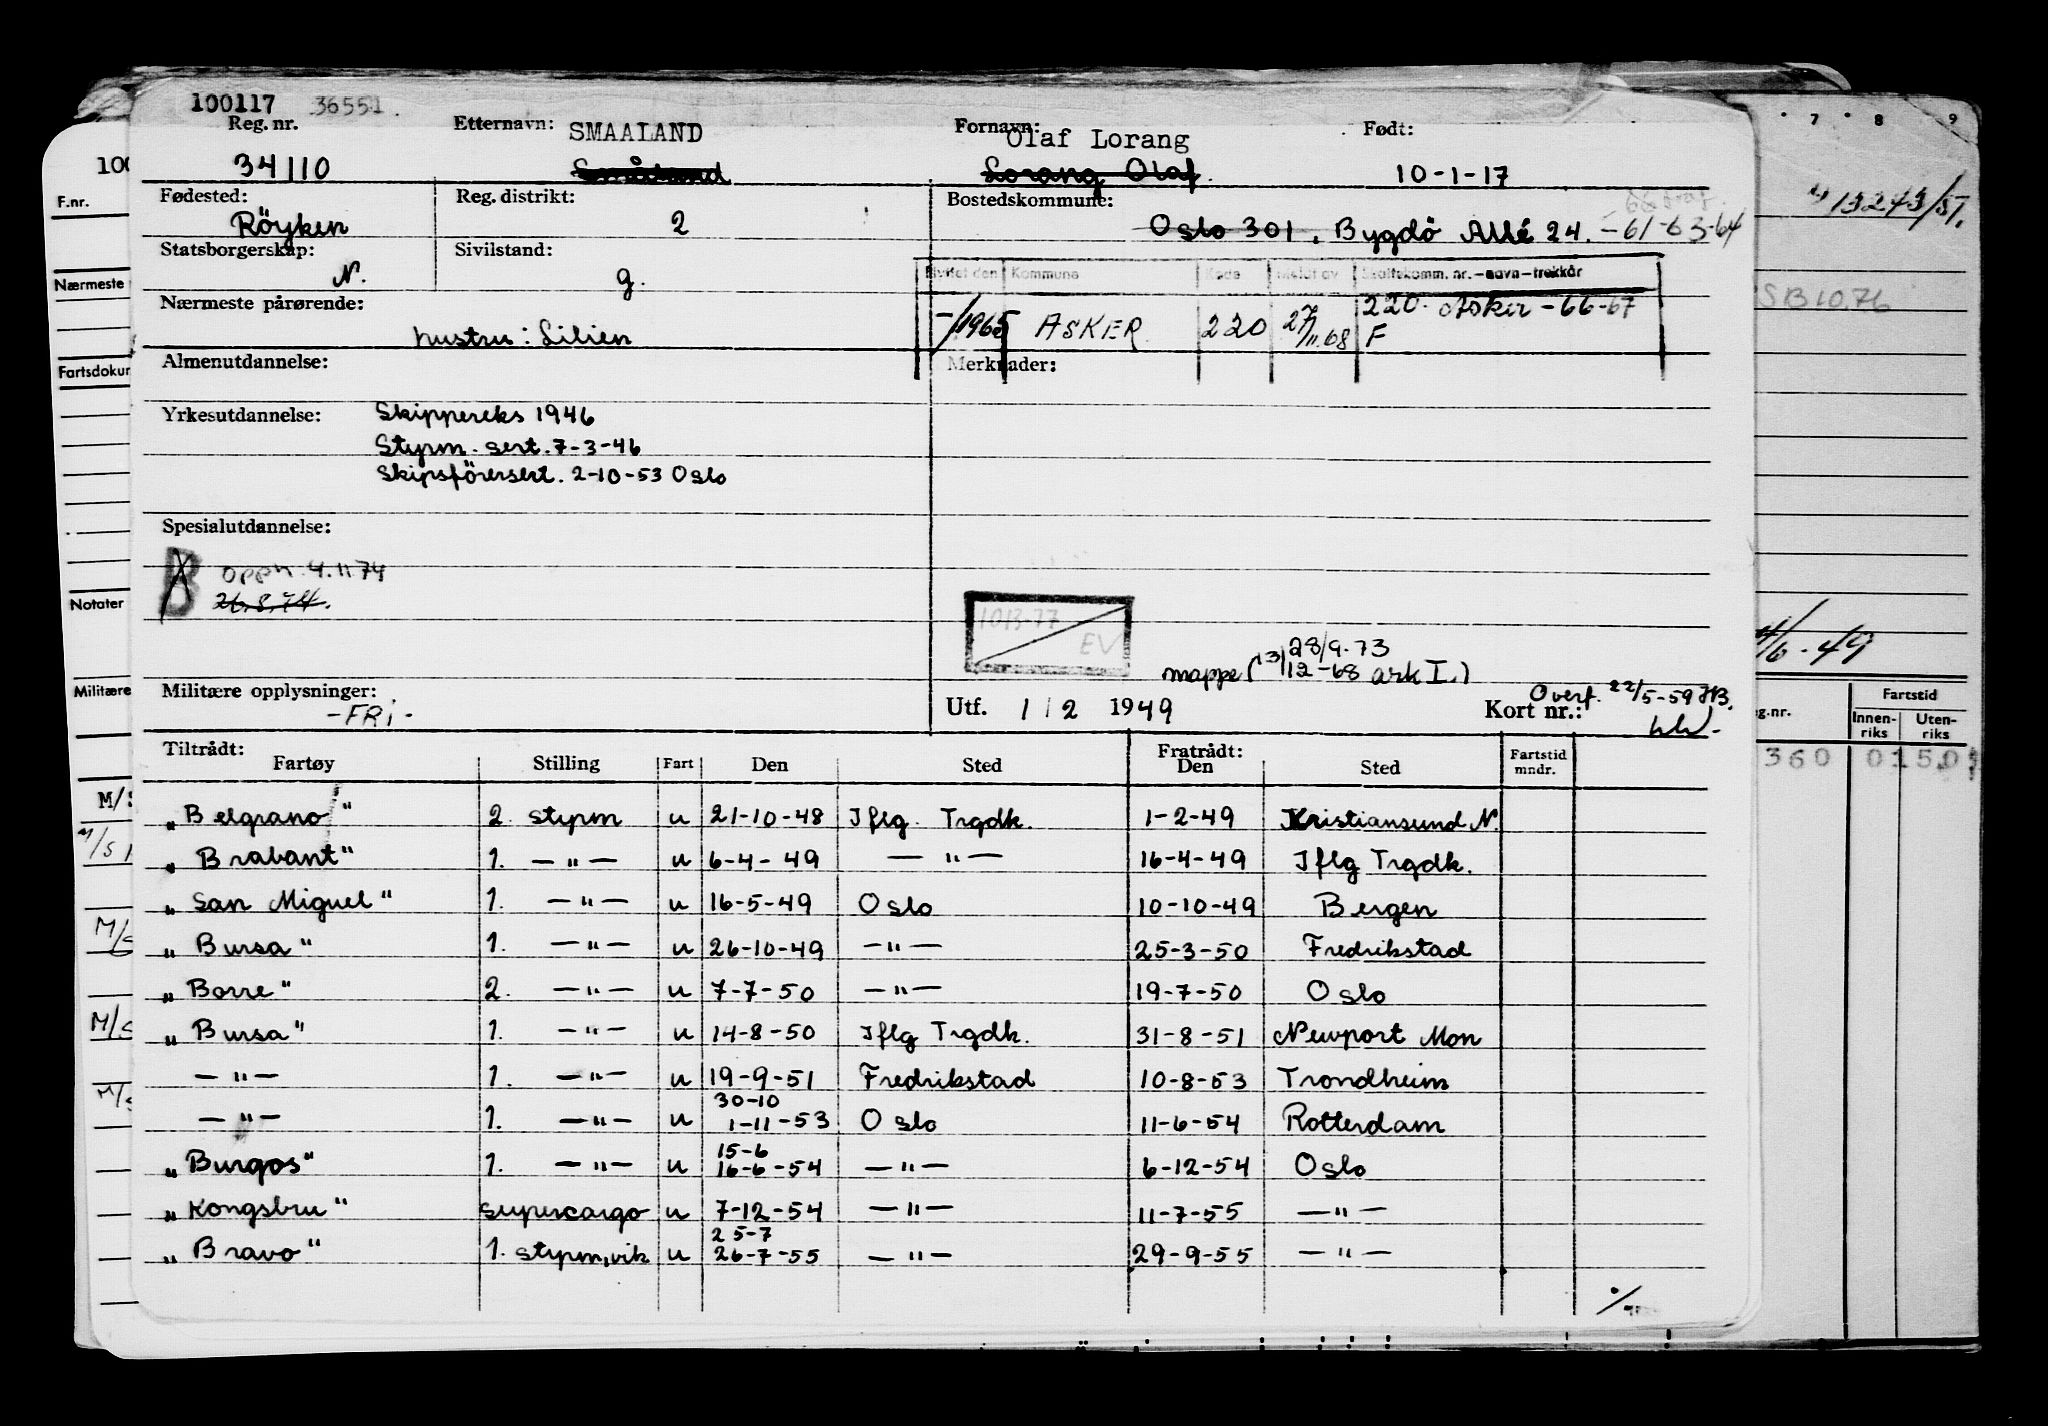 100117 36551
Reg. nr. Etternavn: SMAALAND Fornavn: Olaf Lorang Født:
34110 Småland Lorang Olaf. 10-1-17
Fødested: Reg. distrikt: Bostedskommune:
Röyken 2 Oslo 301, Bygdö Allé 24. -61-63-64
Statsborgerskap: Sivilstand:
N. g.
Kommune Kode Meldt av Skattekomm. nr.-navn-trekkår
Nærmeste pårørende:
hustru: Lilien
-/1965 ASKER 220 27/11.68 220. Asker -66-67
F
Almenutdannelse: Merknader:
Yrkesutdannelse: Skippereks 1946
Styrm. sert. 7-3-46
Skipsförersert. 2-10-53 Oslo
Spesialutdannelse:
B oppn. 4.11.74
26.8.74.
1013-77
EV
28/9.73
mappe (13/12-68 ark I.)
Militære opplysninger:
-FRi-
Utf. 1/2 1949 Kort nr.:
Overf. 22/5-59
Tiltrådt: Fratrådt:
Fartøy Stilling Fart Den Sted Den Sted Fartstid mndr.
„Belgrano" 2. styrm u 21-10-48 Iflg. Trgdk. 1-2-49 Kristiansund N.
„Brabant" 1. -"- u 6-4-49 -"- 16-4-49 Iflg Trgdk.
„San Miguel" 1. -"- u 16-5-49 Oslo 10-10-49 Bergen
„Bursa" 1. -"- u 26-10-49 -"- 25-3-50 Fredrikstad
„Borre" 2. -"- u 7-7-50 -"- 19-7-50 Oslo
„Bursa" 1. -"- u 14-8-50 Iflg Trgdk. 31-8-51 Newport Mon
-"- 1. -"- u 19-9-51 Fredrikstad 10-8-53 Trondheim
30-10
-"- 1. -"- u 1-11-53 Oslo 11-6-54 Rotterdam
15-6
„Burgos" 1. -"- u 16-6-54 -"- 6-12-54 Oslo
„Kongsbru" supercargo u 7-12-54 -"- 11-7-55 -"-
25-7
„Bravo" 1. styrm, vik u 26-7-55 -"- 29-9-55 -"-
100
F.nr.
Nærmeste
Fartsdokur
Notater
Militære
M/S
M/S
M/S
M/S
M/S
7 8 9
13273/51.
SB 10.76
4/6-49
g.nr. Fartstid
Innen-riks Uten-riks
360 015,0